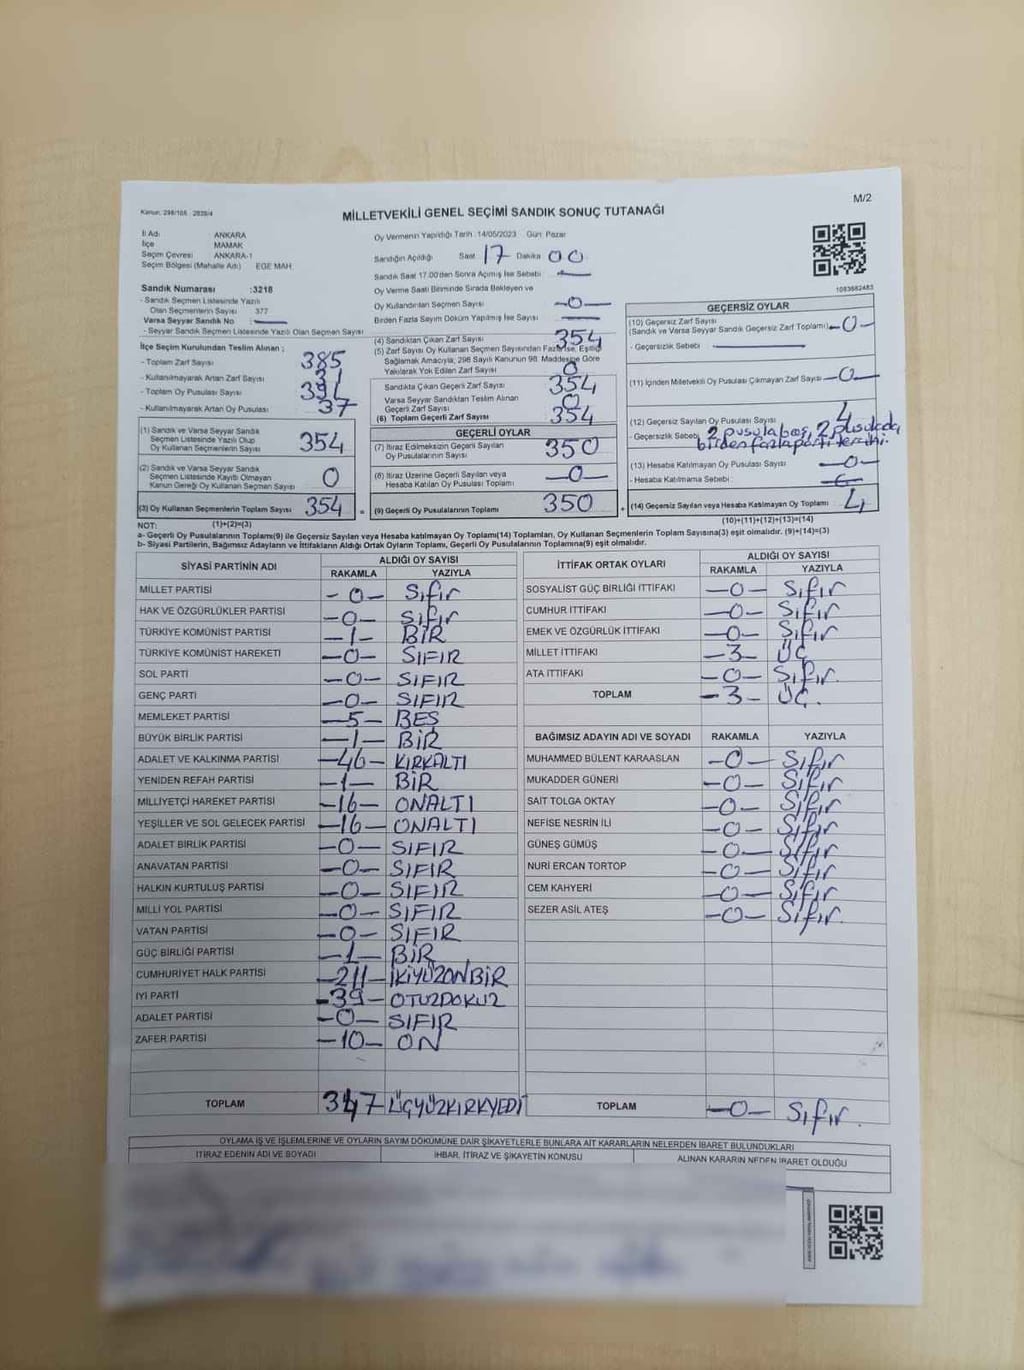 M/2
Kanun: 298/105 2839/4
MİLLETVEKİLİ GENEL SEÇİMİ SANDIK SONUÇ TUTANAĞI
İl Adı ANKARA
İlçe MAMAK
Seçim Çevresi ANKARA-1
Seçim Bölgesi (Mahalle Adı) EGE MAH
Sandık Numarası :3218
- Sandık Seçmen Listesinde Yazılı
Olan Seçmenlerin Sayısı 377
Varsa Seyyar Sandık No :
- Seyyar Sandık Seçmen Listesinde Yazılı Olan Seçmen Sayısı
Oy Vermenin Yapıldığı Tarih :14/05/2023 Gün: Pazar
Sandığın Açıldığı Saat 17 Dakika 00
Sandık Saat 17.00'den Sonra Açılmış İse Sebebi
Oy Verme Saati Bitiminde Sırada Bekleyen ve
Oy Kullandırılan Seçmen Sayısı —0—
Birden Fazla Sayım Döküm Yapılmış İse Sayısı
1083682483
İlçe Seçim Kurulundan Teslim Alınan ;
- Toplam Zarf Sayısı 385
- Kullanılmayarak Artan Zarf Sayısı 31
- Toplam Oy Pusulası Sayısı 391
- Kullanılmayarak Artan Oy Pusulası 37
(1) Sandık ve Varsa Seyyar Sandık
Seçmen Listesinde Yazılı Olup
Oy Kullanan Seçmenlerin Sayısı 354
(2) Sandık ve Varsa Seyyar Sandık
Seçmen Listesinde Kayıtlı Olmayan
Kanun Gereği Oy Kullanan Seçmen Sayısı 0
(3) Oy Kullanan Seçmenlerin Toplam Sayısı 354
(4) Sandıktan Çıkan Zarf Sayısı 354
(5) Zarf Sayısı Oy Kullanan Seçmen Sayısından Fazla İse, Eşitliği
Sağlamak Amacıyla, 298 Sayılı Kanunun 98. Maddesine Göre
Yakılarak Yok Edilen Zarf Sayısı 0
Sandıkta Çıkan Geçerli Zarf Sayısı 354
Varsa Seyyar Sandıktan Teslim Alınan
Geçerli Zarf Sayısı 0
(6) Toplam Geçerli Zarf Sayısı 354
GEÇERLİ OYLAR
(7) İtiraz Edilmeksizin Geçerli Sayılan
Oy Pusulalarının Sayısı 350
(8) İtiraz Üzerine Geçerli Sayılan veya
Hesaba Katılan Oy Pusulası Toplamı —0—
= (9) Geçerli Oy Pusulalarının Toplamı 350
GEÇERSİZ OYLAR
(10) Geçersiz Zarf Sayısı
(Sandık ve Varsa Seyyar Sandık Geçersiz Zarf Toplamı) —0—
- Geçersizlik Sebebi
(11) İçinden Milletvekili Oy Pusulası Çıkmayan Zarf Sayısı —0—
(12) Geçersiz Sayılan Oy Pusulası Sayısı 4
- Geçersizlik Sebebi 2 pusula boş, 2 pusulada
birden fazla parti tercihi.
(13) Hesaba Katılmayan Oy Pusulası Sayısı —0—
- Hesaba Katılmama Sebebi :
+ (14) Geçersiz Sayılan veya Hesaba Katılmayan Oy Toplamı 4
NOT: (1)+(2)=(3) (10)+(11)+(12)+(13)=(14)
a- Geçerli Oy Pusulalarının Toplamı(9) ile Geçersiz Sayılan veya Hesaba katılmayan Oy Toplamı(14) Toplamları, Oy Kullanan Seçmenlerin Toplam Sayısına(3) eşit olmalıdır. (9)+(14)=(3)
b- Siyasi Partilerin, Bağımsız Adayların ve İttifakların Aldığı Ortak Oyların Toplamı, Geçerli Oy Pusulalarının Toplamına(9) eşit olmalıdır.
SİYASİ PARTİNİN ADI ALDIĞI OY SAYISI
RAKAMLA YAZIYLA
MİLLET PARTİSİ -0- Sıfır
HAK VE ÖZGÜRLÜKLER PARTİSİ —0— Sıfır
TÜRKİYE KOMÜNİST PARTİSİ —1— BİR
TÜRKİYE KOMÜNİST HAREKETİ —0— SIFIR
SOL PARTİ —0— SIFIR
GENÇ PARTİ —0— SIFIR
MEMLEKET PARTİSİ —5— BEŞ
BÜYÜK BİRLİK PARTİSİ —1— BİR
ADALET VE KALKINMA PARTİSİ —46— KIRKALTI
YENİDEN REFAH PARTİSİ —1— BİR
MİLLİYETÇİ HAREKET PARTİSİ —16— ONALTI
YEŞİLLER VE SOL GELECEK PARTİSİ —16— ONALTI
ADALET BİRLİK PARTİSİ —0— SIFIR
ANAVATAN PARTİSİ —0— SIFIR
HALKIN KURTULUŞ PARTİSİ —0— SIFIR
MİLLİ YOL PARTİSİ —0— SIFIR
VATAN PARTİSİ —0— SIFIR
GÜÇ BİRLİĞİ PARTİSİ —1— BİR
CUMHURİYET HALK PARTİSİ —211— İKİYÜZONBİR
İYİ PARTİ —39— OTUZDOKUZ
ADALET PARTİSİ —0— SIFIR
ZAFER PARTİSİ —10— ON
TOPLAM 347 ÜÇYÜZKIRKYEDİ
İTTİFAK ORTAK OYLARI ALDIĞI OY SAYISI
RAKAMLA YAZIYLA
SOSYALİST GÜÇ BİRLİĞİ İTTİFAKI —0— Sıfır
CUMHUR İTTİFAKI —0— Sıfır
EMEK VE ÖZGÜRLÜK İTTİFAKI —0— Sıfır
MİLLET İTTİFAKI —3— ÜÇ
ATA İTTİFAKI —0— Sıfır.
TOPLAM —3— ÜÇ.
BAĞIMSIZ ADAYIN ADI VE SOYADI RAKAMLA YAZIYLA
MUHAMMED BÜLENT KARAASLAN —0— Sıfır
MUKADDER GÜNERİ —0— Sıfır
SAİT TOLGA OKTAY —0— Sıfır
NEFİSE NESRİN İLİ —0— Sıfır
GÜNEŞ GÜMÜŞ —0— Sıfır
NURİ ERCAN TORTOP —0— Sıfır
CEM KAHYERİ —0— Sıfır
SEZER ASİL ATEŞ —0— Sıfır
TOPLAM —0— Sıfır.
OYLAMA İŞ VE İŞLEMLERİNE VE OYLARIN SAYIM DÖKÜMÜNE DAİR ŞİKAYETLERLE BUNLARA AİT KARARLARIN NELERDEN İBARET BULUNDUKLARI
İTİRAZ EDENİN ADI VE SOYADI İHBAR, İTİRAZ VE ŞİKAYETİN KONUSU ALINAN KARARIN NEDEN İBARET OLDUĞU